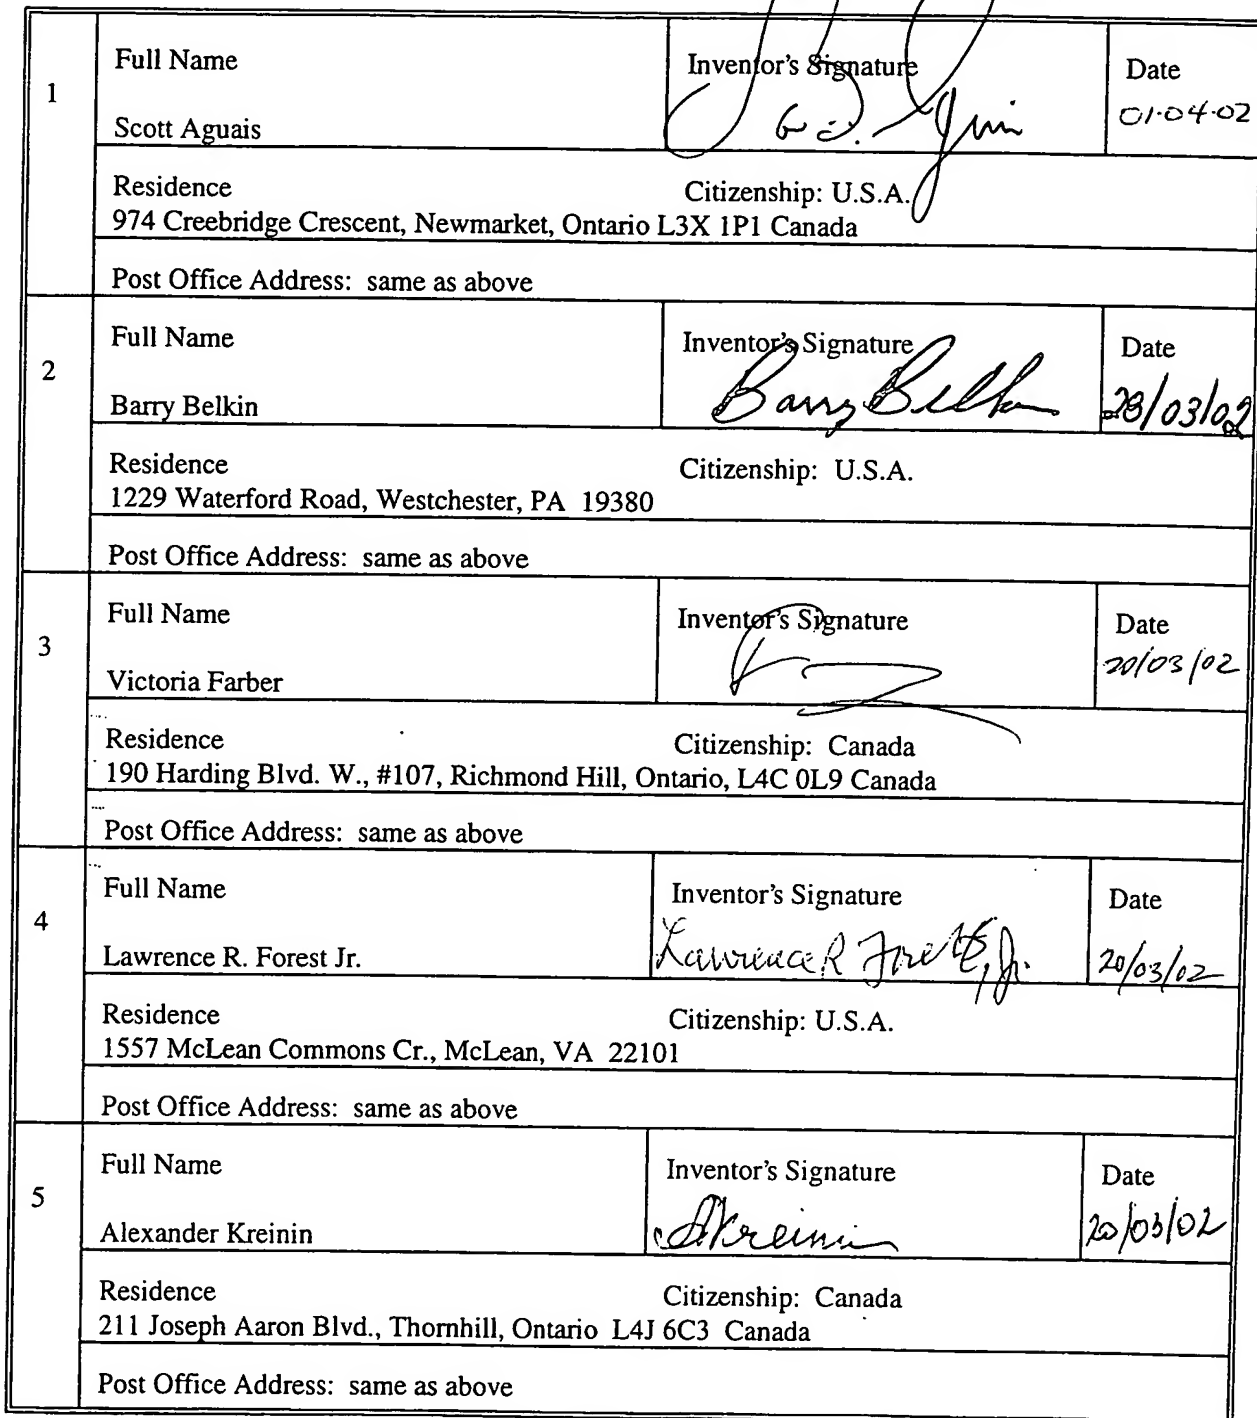 1
Full Name
Scott Aguais
Inventor's Signature
Date
01.04.02
Residence
Citizenship: U.S.A.
974 Creebridge Crescent, Newmarket, Ontario L3X 1P1 Canada
Post Office Address: same as above
2
Full Name
Barry Belkin
Inventor's Signature
Barry Belkin
Date
28/03/02
Residence
Citizenship: U.S.A.
1229 Waterford Road, Westchester, PA 19380
Post Office Address: same as above
3
Full Name
Victoria Farber
Inventor's Signature
Date
20/03/02
Residence
Citizenship: Canada
190 Harding Blvd. W., #107, Richmond Hill, Ontario, L4C 0L9 Canada
Post Office Address: same as above
4
Full Name
Lawrence R. Forest Jr.
Inventor's Signature
Lawrence R Forest, Jr.
Date
20/03/02
Residence
Citizenship: U.S.A.
1557 McLean Commons Cr., McLean, VA 22101
Post Office Address: same as above
5
Full Name
Alexander Kreinin
Inventor's Signature
AKreinin
Date
20/03/02
Residence
Citizenship: Canada
211 Joseph Aaron Blvd., Thornhill, Ontario L4J 6C3 Canada
Post Office Address: same as above